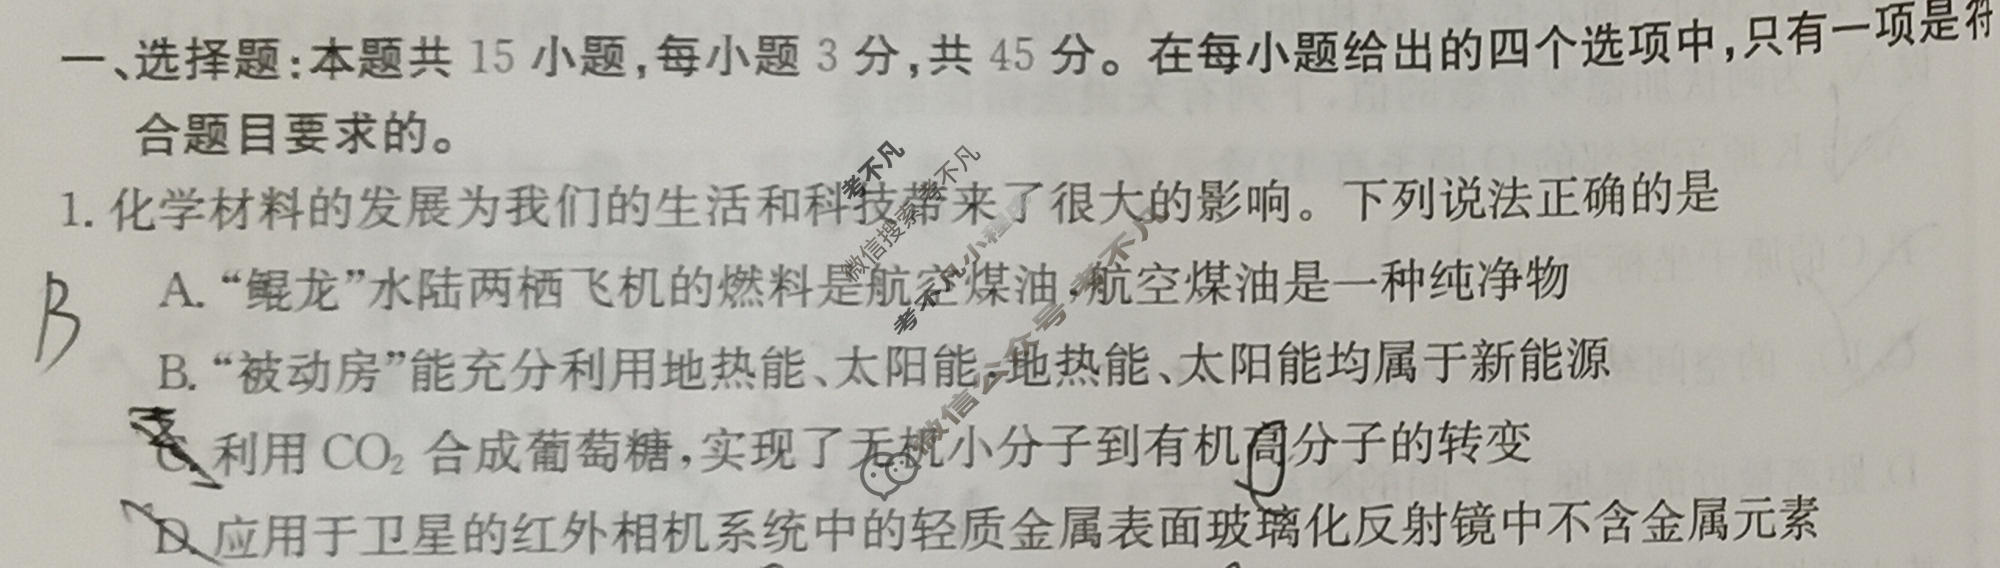 一、选择题:本题共 15 小题,每小题 3 分,共 45 分。在每小题给出的四个选项中,只有一项是符
合题目要求的。
1. 化学材料的发展为我们的生活和科技带来了很大的影响。下列说法正确的是
A. “鲲龙”水陆两栖飞机的燃料是航空煤油,航空煤油是一种纯净物
B
B. “被动房”能充分利用地热能、太阳能,地热能、太阳能均属于新能源
C. 利用 CO₂ 合成葡萄糖,实现了无机小分子到有机高分子的转变
D. 应用于卫星的红外相机系统中的轻质金属表面玻璃化反射镜中不含金属元素
考不凡
微信搜索考不凡
考不凡小程序
微信公众号考不凡